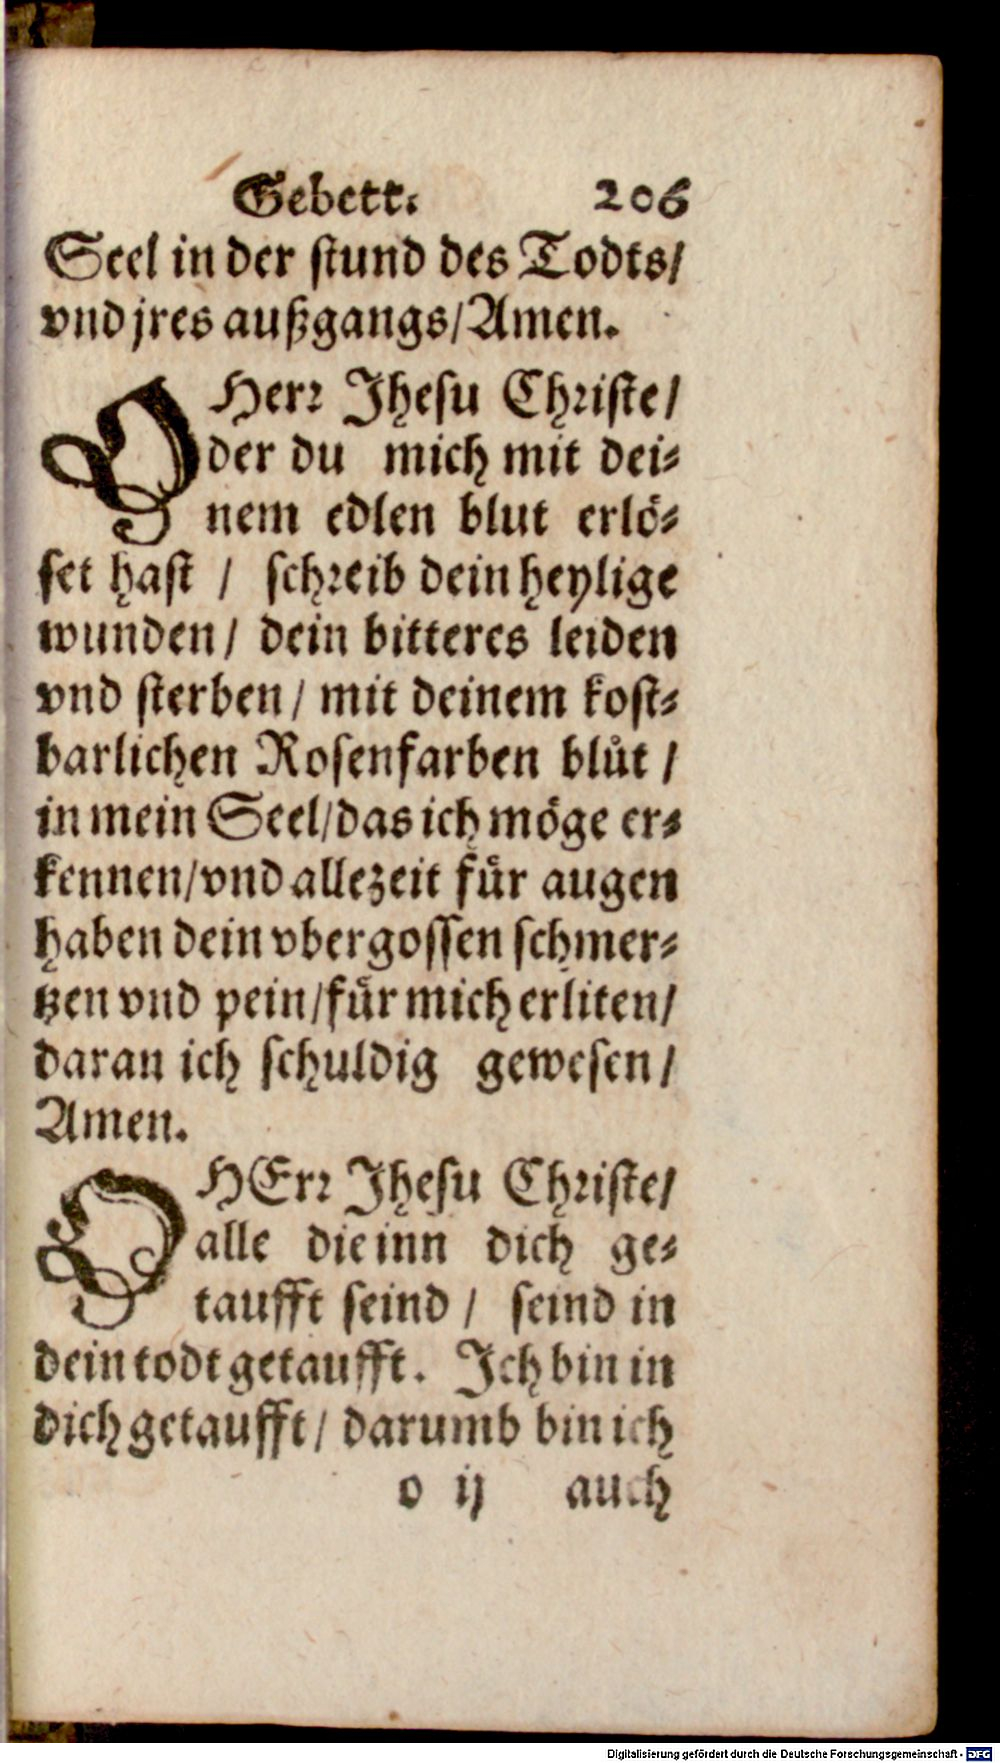 Gebett. 206
Seel in der stund des Todts/
vnd jres außgangs/Amen.
O Herr Jhesu Christe/
der du mich mit dei-
nem edlen blut erlö-
set hast / schreib dein heylige
wunden/ dein bitteres leiden
vnd sterben/ mit deinem kost-
barlichen Rosenfarben blůt /
in mein Seel/das ich möge er-
kennen/vnd allezeit für augen
haben dein vbergossen schmer-
tzen vnd pein/für mich erliten/
daran ich schuldig gewesen/
Amen.
O HErr Jhesu Christe/
alle die inn dich ge-
taufft seind / seind in
dein todt getaufft. Ich bin in
dich getaufft/ darumb bin ich
o ij auch
Digitalisierung gefördert durch die Deutsche Forschungsgemeinschaft - DFG